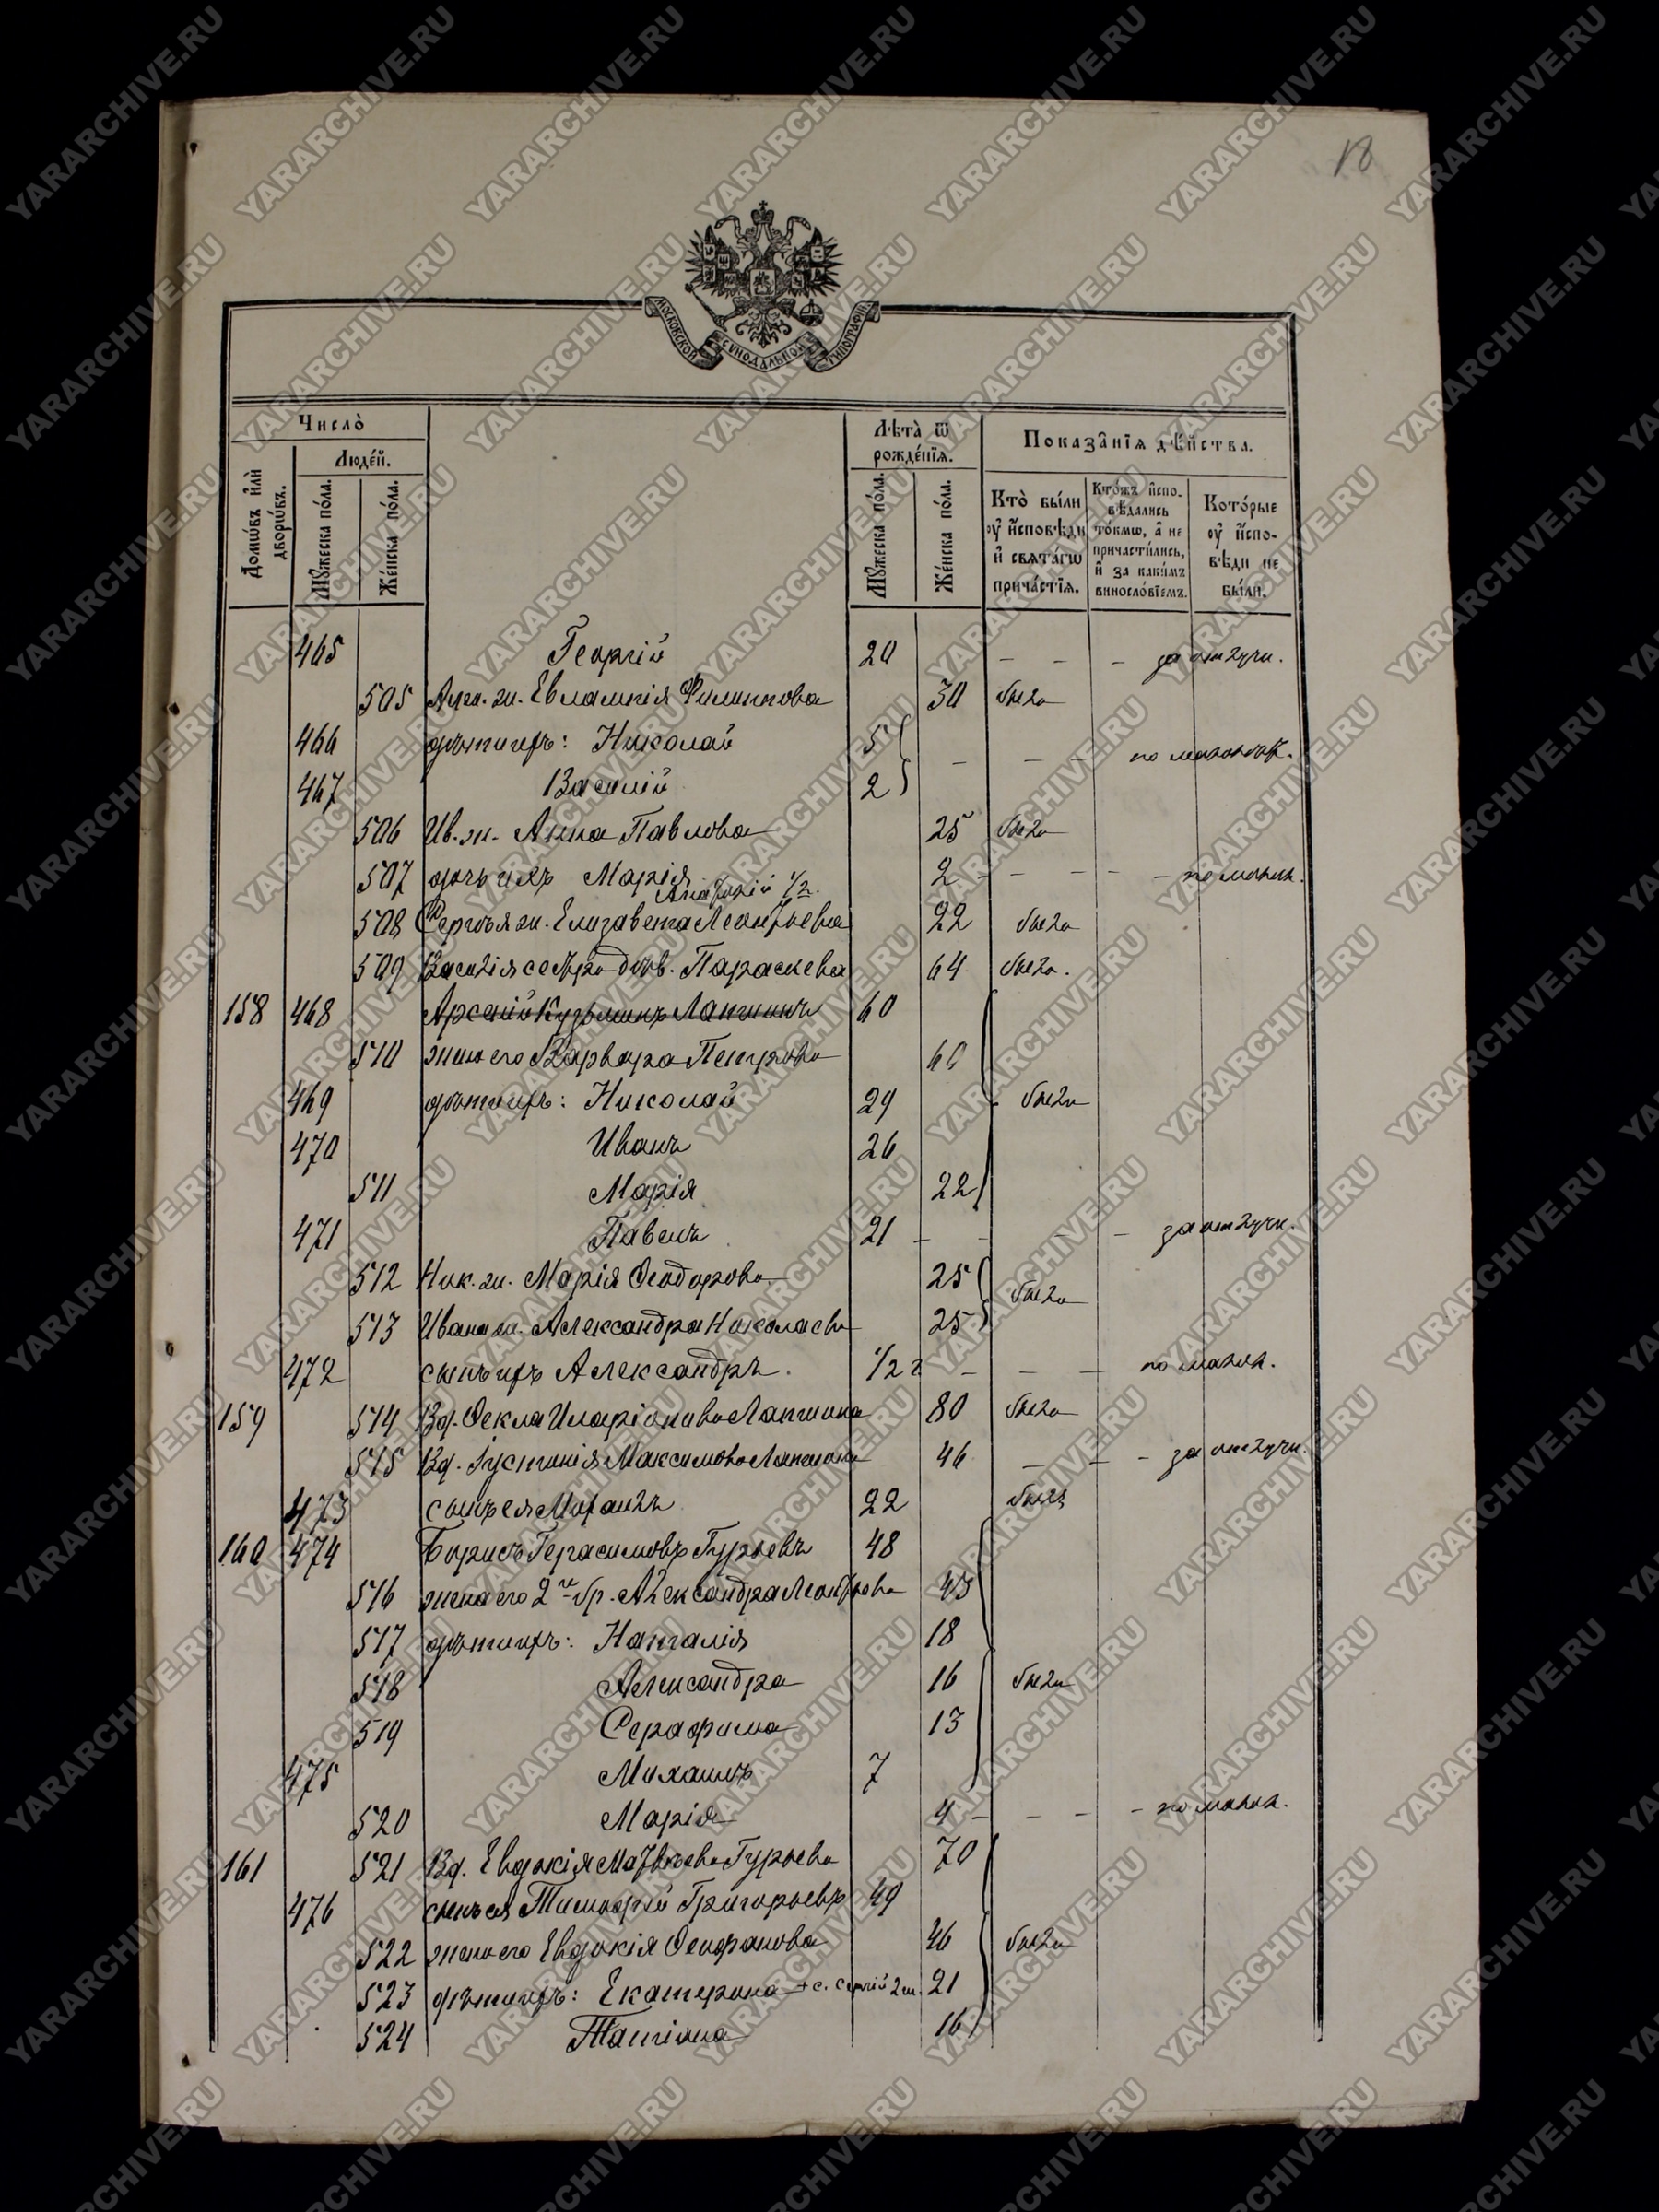 18
МОСКОВСКОЙ СѴНОДАЛЬНОЙ ТИПОГРАФІИ
Число̀
Домѡ́въ и҆лѝ дворѡ́въ.
Люде́й.
Мꙋ́жеска по́ла.
Же́нска по́ла.
Лѣ́та ѿ рожде́нїѧ.
Мꙋ́жеска по́ла.
Же́нска по́ла.
Показа̑нїѧ дѣ́йства.
Кто̀ бы́ли ᲂу҆ и҆сповѣ́ди и҆ свѧта́гѡ прича́стїѧ.
Кто́жъ и҆сповѣ́дались то́кмѡ, а҆ не причасти́лись, и҆ за каки́мъ виносло́вїемъ.
Кото́рые ᲂу҆ и҆сповѣ́ди не бы́ли.
465 Георгій 20 - - - за отлуч.
505 Алек. ж. Евлампія Филиппова 30 была
466 дѣти ихъ: Николай 5
467 Василій 2 - - - по малолѣт.
506 Ив. ж. Анна Павлова 25 была
507 дочь ихъ Марія 2 - - - - - по малол.
Анатолій 1/2.
508 Сергѣя ж. Елизавета Леонтьева 22 была
509 Василія сестра дѣв. Параскева 64 была.
158 468 Арсеній Кузьминъ Лапшинъ 60
510 жена его Варвара Петрова 60
469 дѣти ихъ: Николай 29 были
470 Иванъ 26
511 Марія 22
471 Павелъ 21 - - - - за отлуч.
512 Ник. ж. Марія Ѳеодорова 25 были
513 Ивана ж. Александра Николаева 25
472 сынъ ихъ Александръ. 1/2 г - - - по малол.
159 514 Вд. Ѳекла Иларіонова Лапшина 80 была
515 Вд. Іустинія Максимова Лапшина 46 - - - за отлуч.
473 сынъ ея Михаилъ 22 былъ
160 474 Борисъ Герасимовъ Гурьевъ 48
516 жена его 2 го бр. Александра Леонтьева 43
517 дѣти ихъ: Наталія 18
518 Александра 16 были
519 Серафима 13
475 Михаилъ 7
520 Марія 4 - - - - по малол.
161 521 Вд. Евдокія Матвѣева Гурьева 70
476 сынъ ея Тимофей Григорьевъ 49
522 жена его Евдокія Ѳеофанова 46 были
523 дѣти ихъ: Екатерина + с. Сергій 2 м. 21
524 Татіана 16
YARARCHIVE.RU